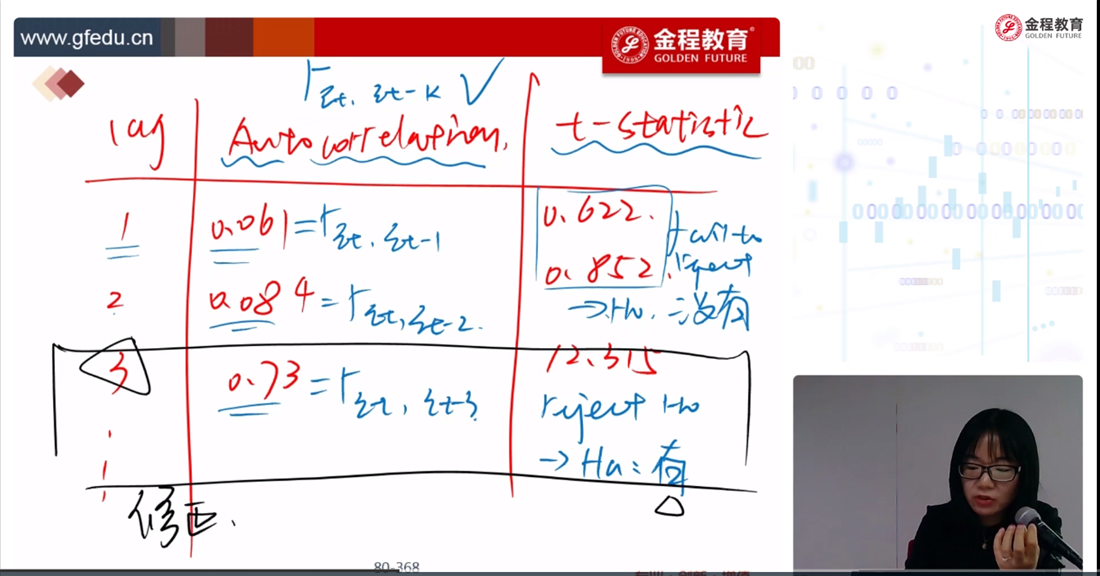 www.gfedu.cn
金程教育
GOLDEN FUTURE
金程教育
GOLDEN FUTURE
rεt, εt-k ✓
lag Autocorrelation, t-statistic
1 0.061 = rεt, εt-1 0.622. fail to
2 0.084 = rεt, εt-2. 0.852. reject
→ H0. 没有
3 0.73 = rεt, εt-3 12.315
reject H0
→ Ha: 有
修正.
80-368